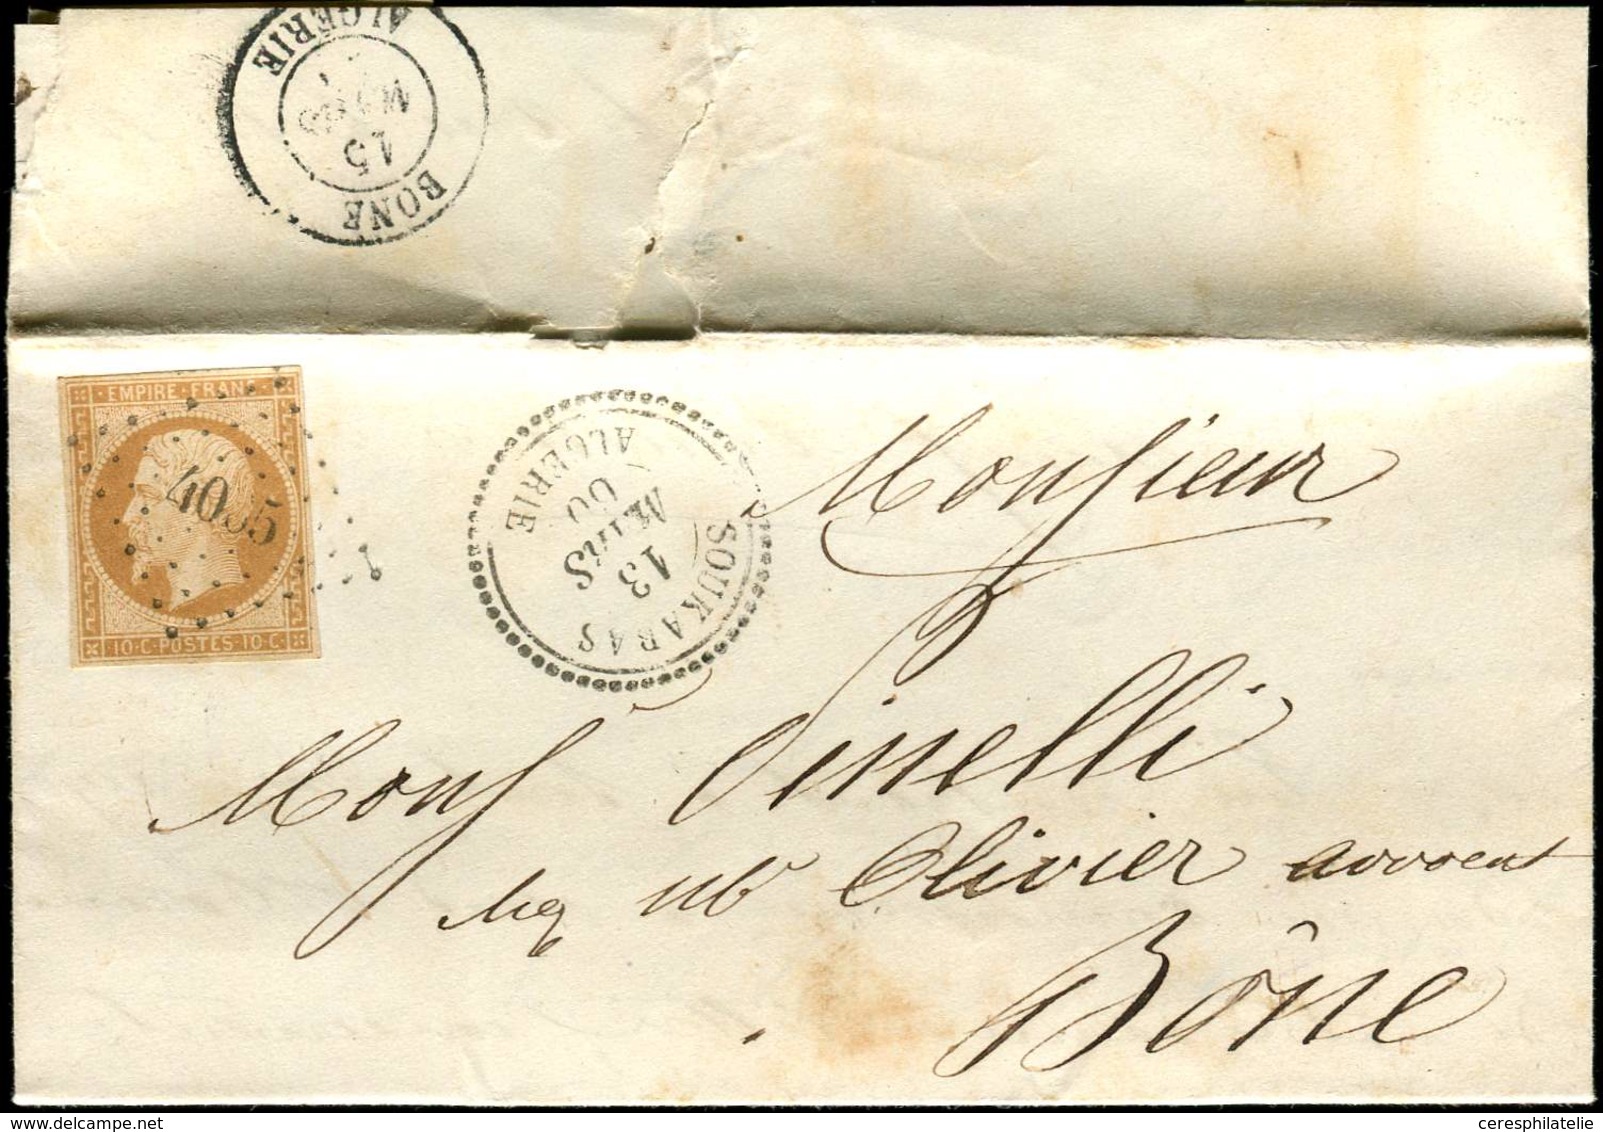 BONE
15
MARS
ALGÉRIE
EMPIRE FRANC
4035
10·C·POSTES·10·C·
SOUKARAS
13
MARS
60
ALGERIE
Monsieur
Mons Vinelli
Olivier avocat
Bône
ceresphilatelie